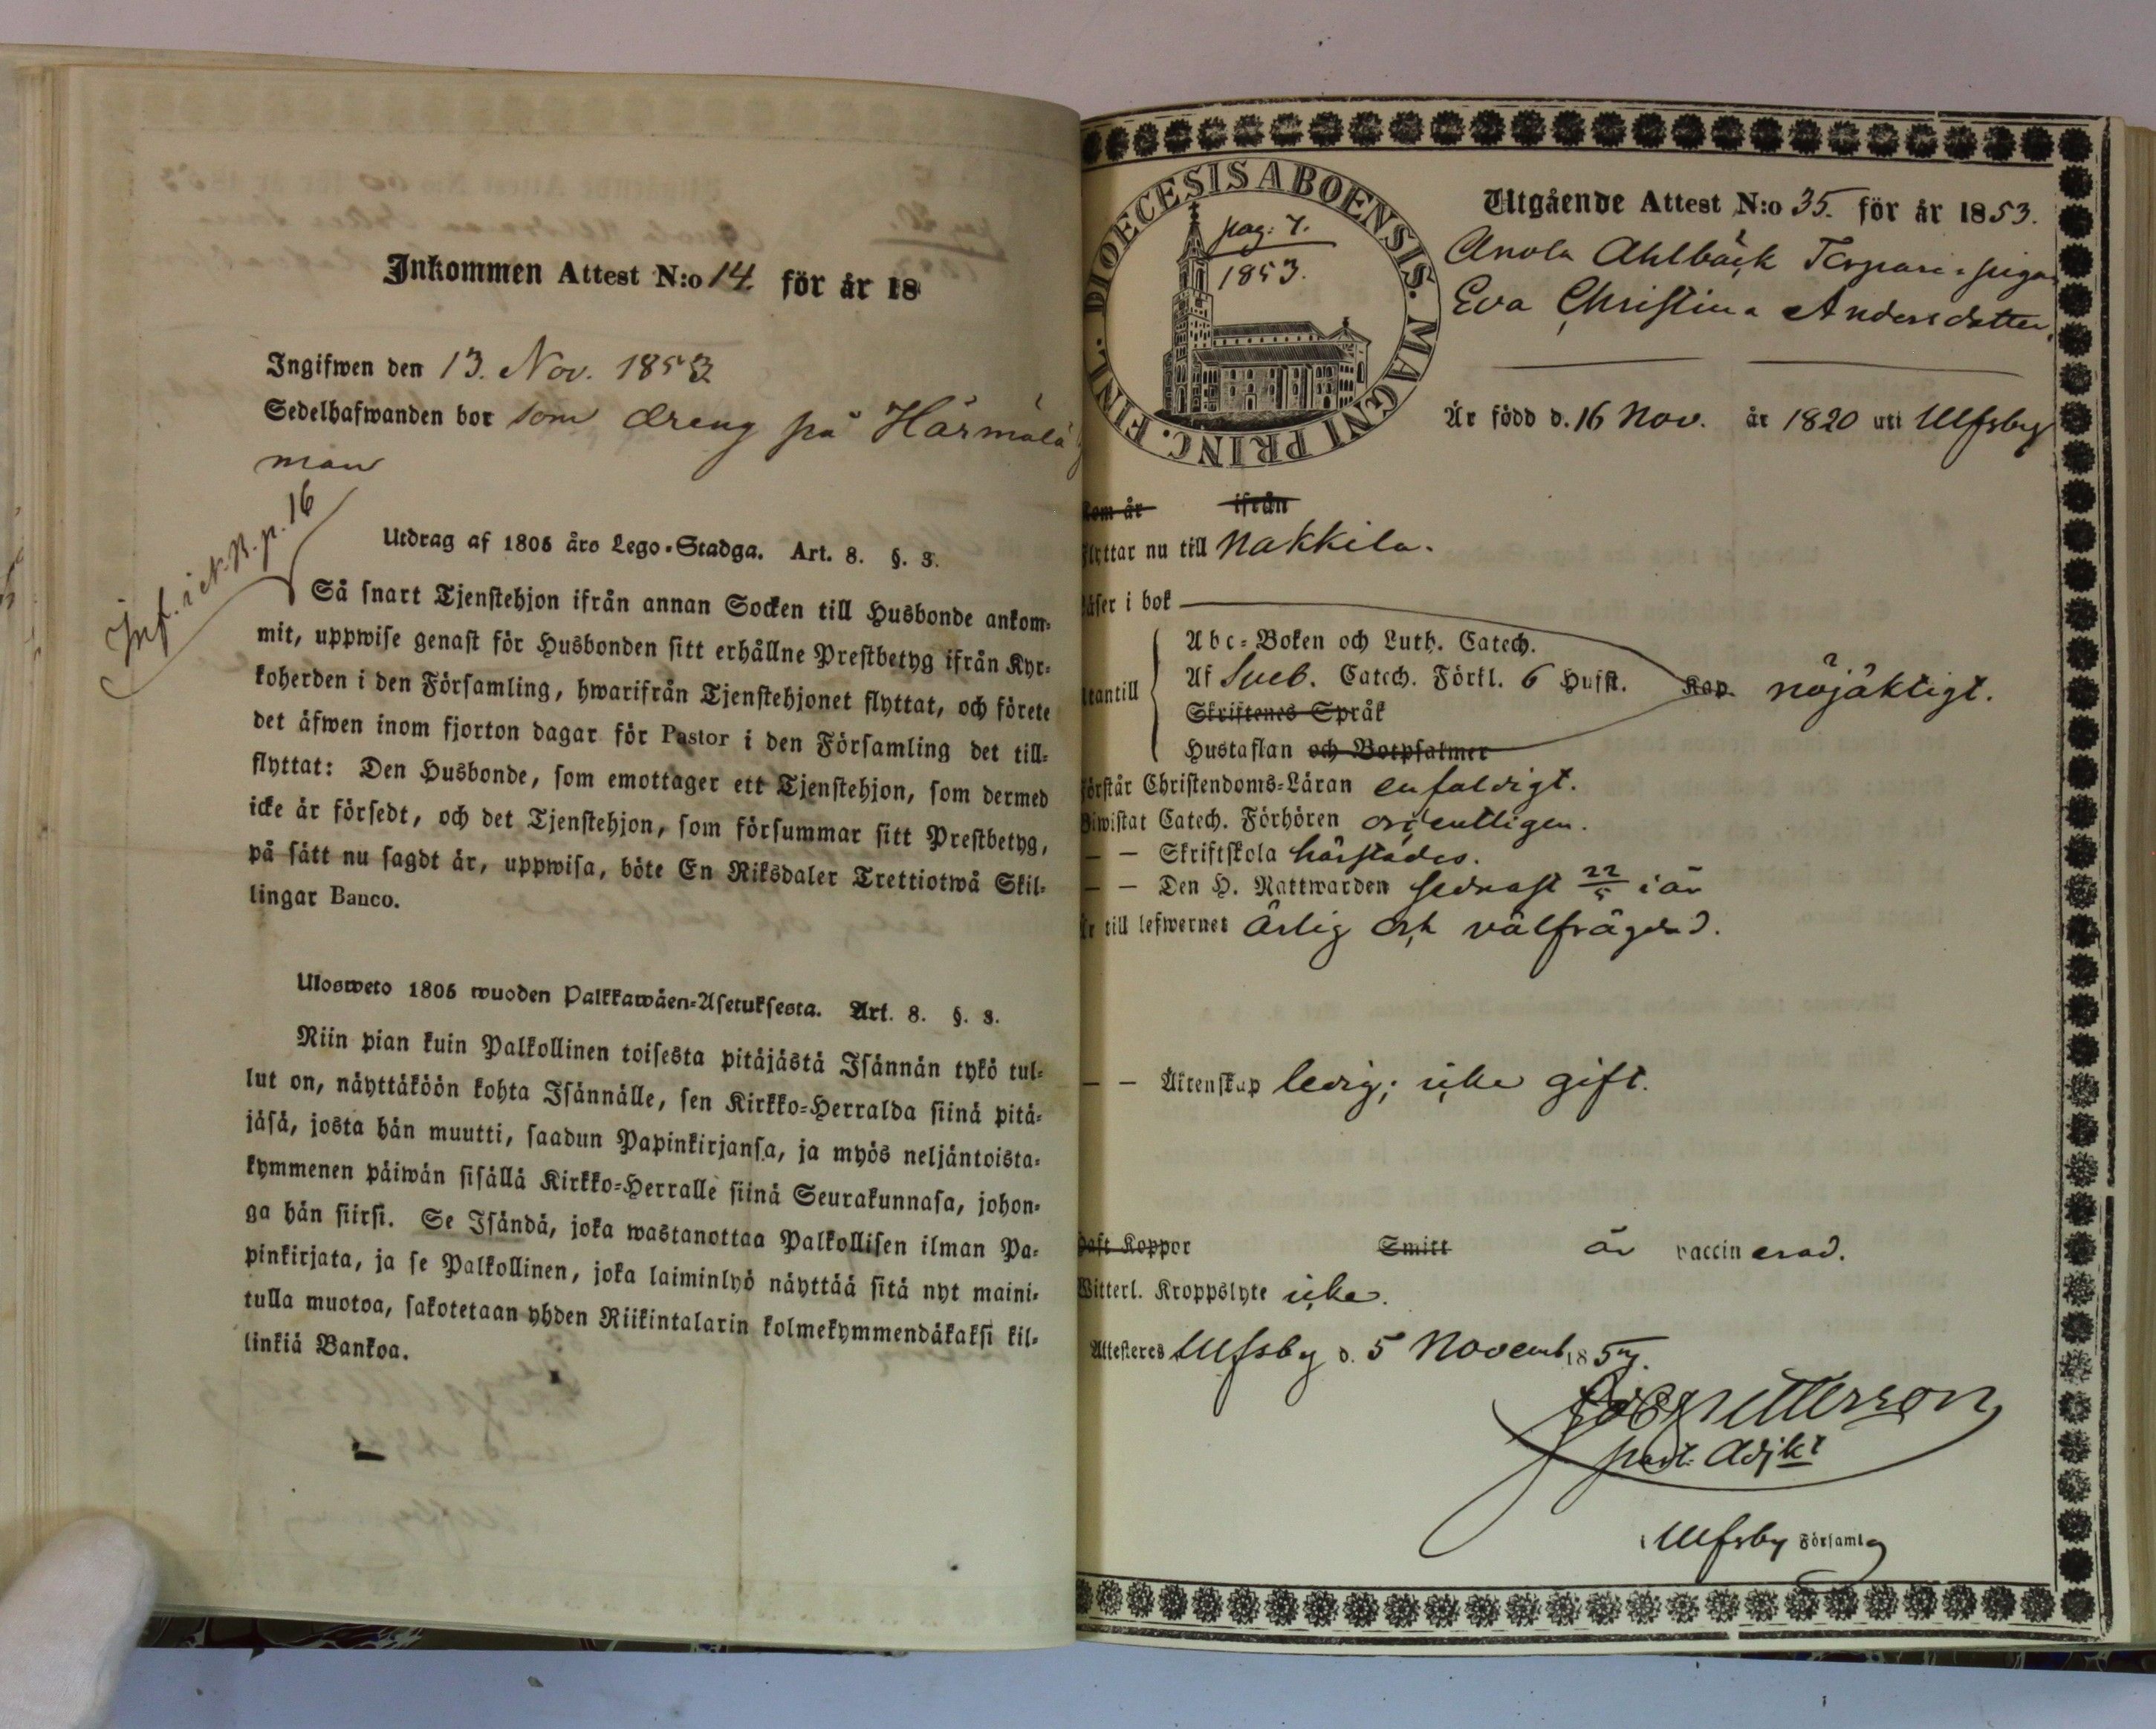 Inkommen Attest N:o 14. för år 18
Ingifwen den 13. Nov. 1853
Sedelhafwanden bor som dreng på Härmälä
man
Inf. i N.B. p. 16
Utdrag af 1805 års Lego-Stadga. Art. 8. §. 3.
Så snart Tjenstehjon ifrån annan Socken till Husbonde ankom-
mit, uppwise genast för Husbonden sitt erhållne Prestbetyg ifrån Kyr-
koherden i den Församling, hwarifrån Tjenstehjonet flyttat, och förete
det äfwen inom fjorton dagar för Pastor i den Församling det till-
flyttat: Den Husbonde, som emottager ett Tjenstehjon, som dermed
icke är försedt, och det Tjenstehjon, som försummar sitt Prestbetyg,
på sätt nu sagdt är, uppwisa, böte En Riksdaler Trettiotwå Skil-
lingar Banco.
Ulosweto 1805 wuoden Palkkawäen-Asetuksesta. Art. 8. §. 3.
Niin pian kuin Palkollinen toisesta pitäjästä Isännän tykö tul-
lut on, näyttäköön kohta Isännälle, sen Kirkko-Herralda siinä pitä-
jäsä, josta hän muutti, saadun Papinkirjansa, ja myös neljäntoista-
kymmenen päiwän sisällä Kirkko-Herralle siinä Seurakunnasa, johon-
ga hän siirsi. Se Isändä, joka wastanottaa Palkollisen ilman Pa-
pinkirjata, ja se Palkollinen, joka laiminlyö näyttää sitä nyt maini-
tulla muotoa, sakotetaan yhden Riikintalarin kolmekymmendäkaksi kil-
linkiä Bankoa.
DIOECESIS ABOENSIS. MAGNI PRINC. FINL.
pag. 7.
1853.
Utgående Attest N:o 35. för år 1853.
Anola Ahlbäck Torpare pigan
Eva Christina Andersdotter,
Är född d. 16 Nov. år 1820 uti Ulfsby
Kom år ifrån
Flyttar nu till Nakkila.
Läser i bok
Abc-Boken och Luth. Catech.
Utantill Af Sveb. Catech. Förkl. 6 Hufst. Kap. nöjaktigt.
Skriftenes Språk
Hustaflan och Botpsalmer
Förstår Christendoms-Läran enfaldigt.
Biwistat Catech. Förhören ordentligen.
— — Skriftskola härstädes.
— — Den H. Nattwarden sednast 22/5 i år
Är till lefwernet ärlig och välfrägdad.
— — Äktenskap ledig; icke gift.
Haft Koppor Smitt är vaccinerad.
Witterl. Kroppslyte icke.
Attesteres Ulfsby d. 5 Novemb. 1853.
past. Adjkt
i Ulfsby Församlg